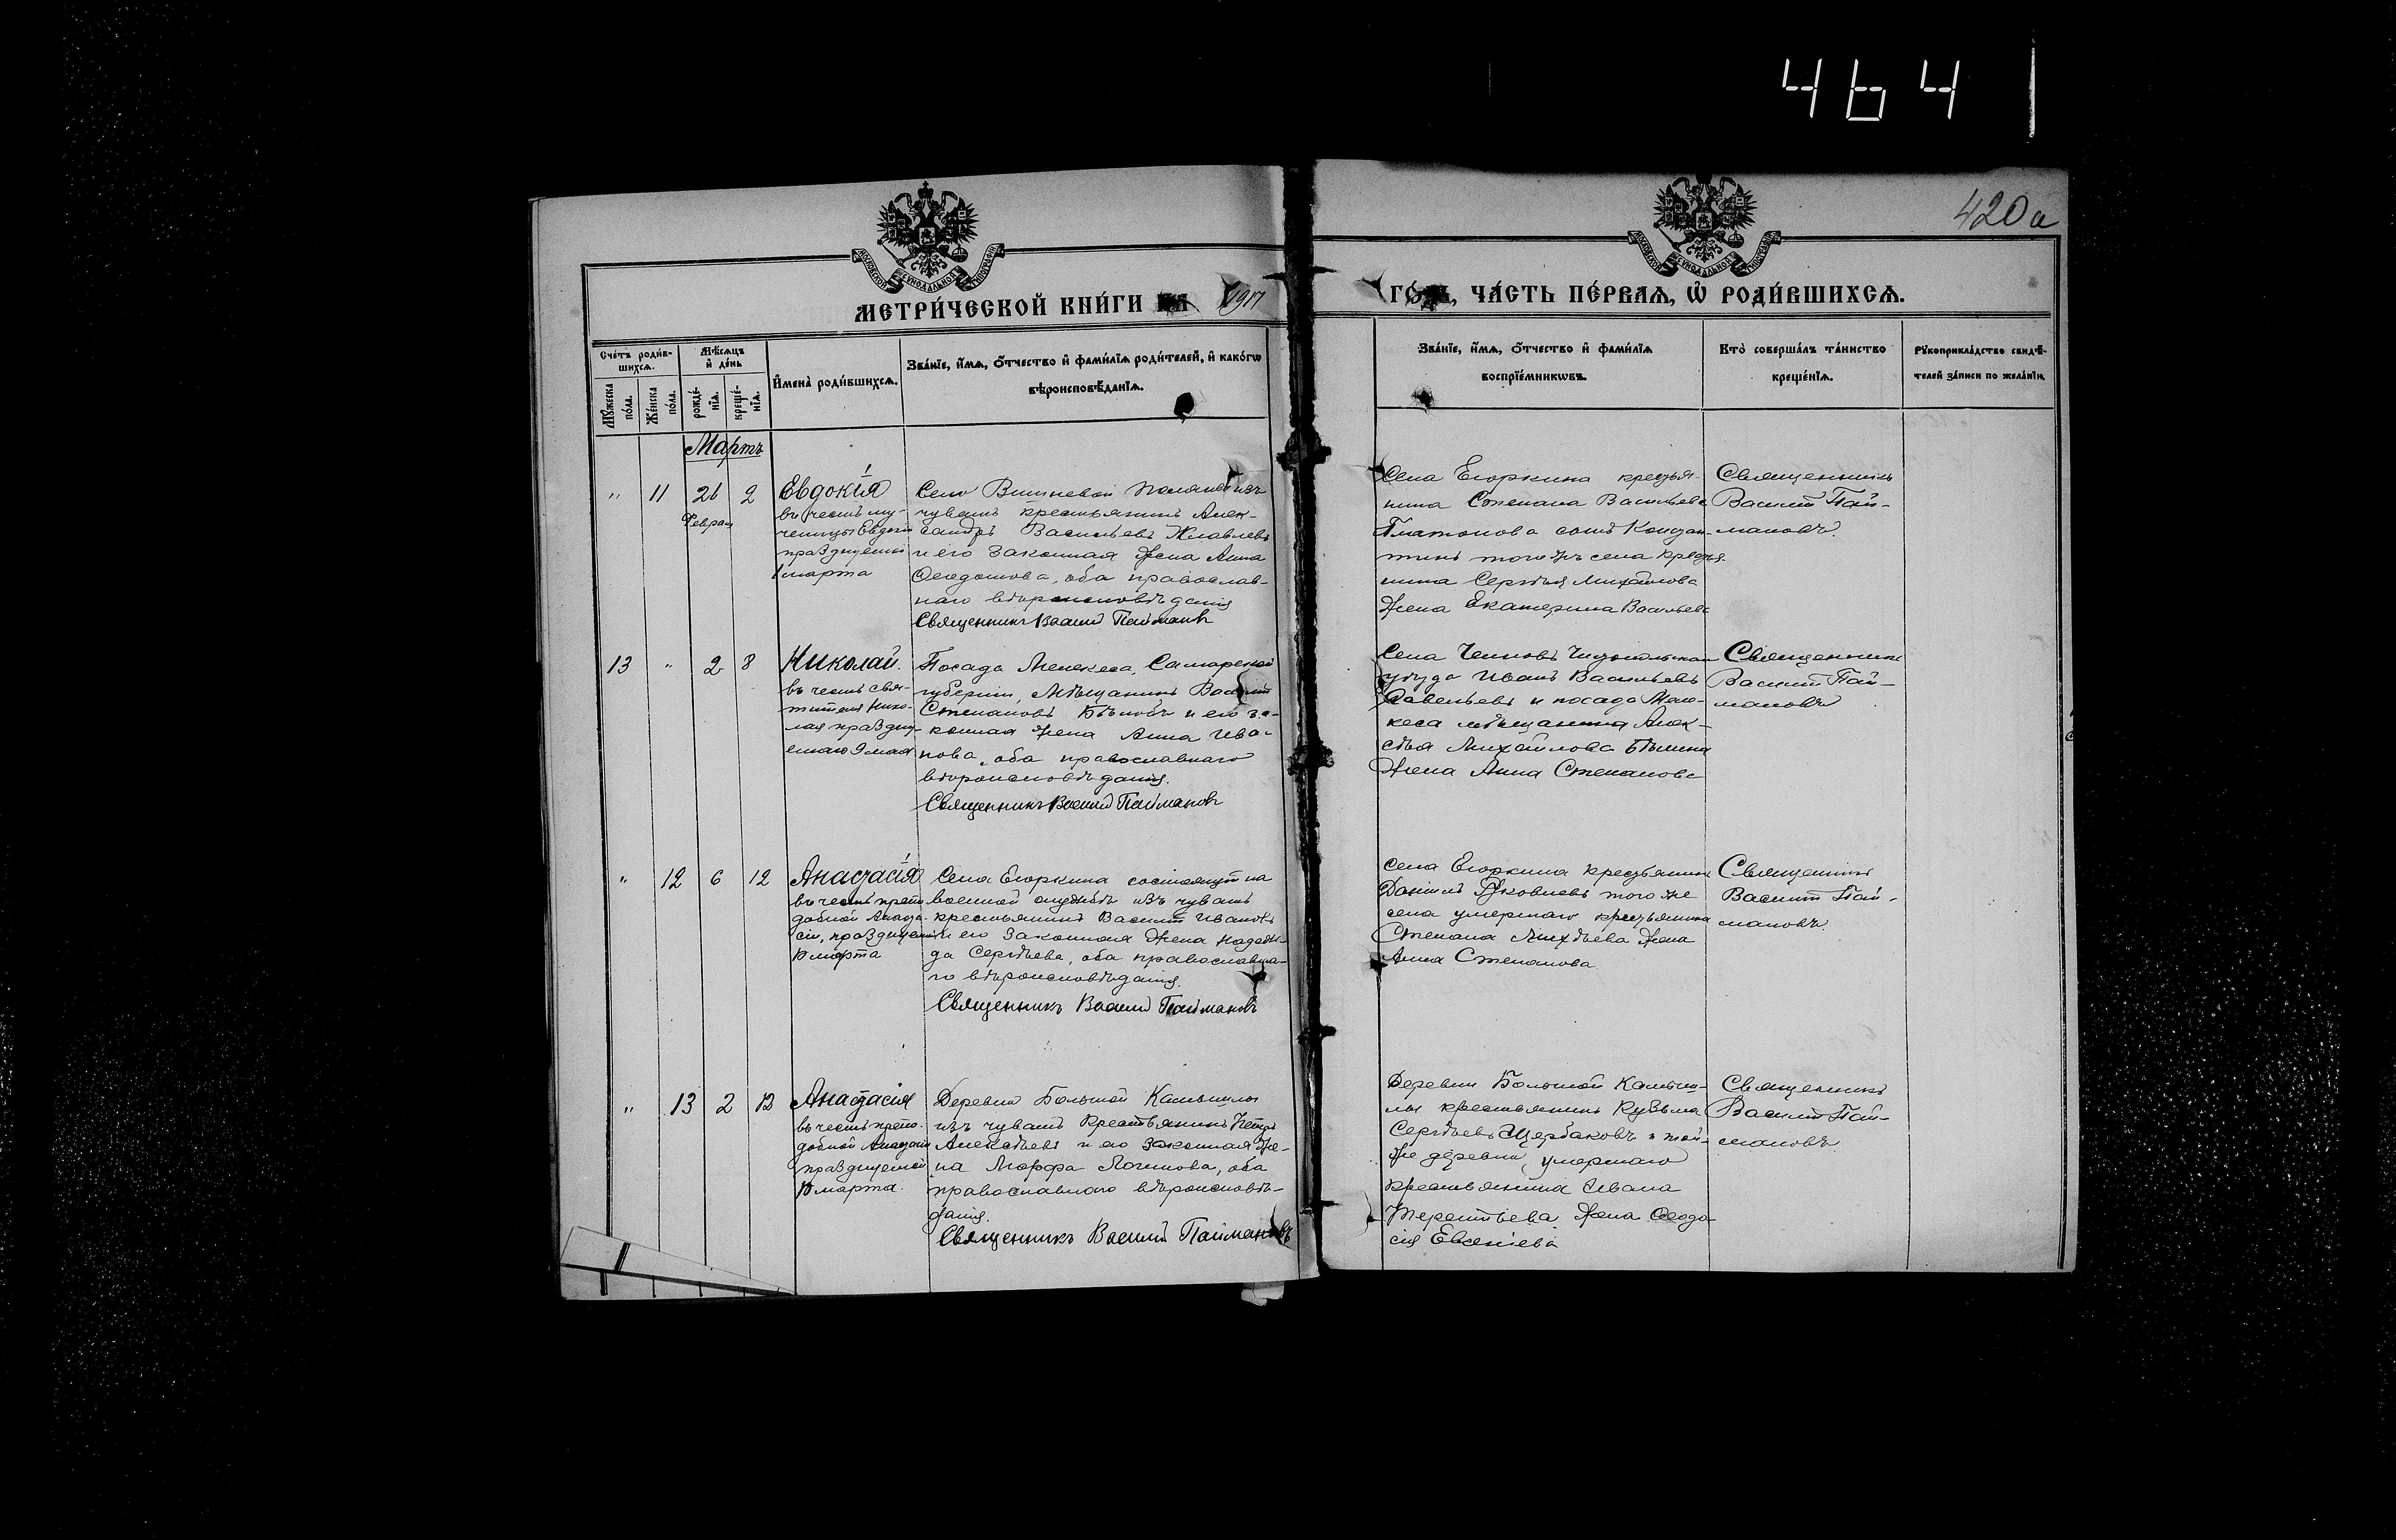 4641
420а
МОСКОВСКОЙ СУНОДАЛЬНОЙ ТИПОГРАФІИ
МОСКОВСКОЙ СУНОДАЛЬНОЙ ТИПОГРАФІИ
МЕТРИ́ЧЕСКОЙ КНИ́ГИ НА 1917
ГО́ДЪ, ЧА́СТЬ ПЕ́РВАЯ, Ѡ҆ РОДИ́ВШИХСЯ.
Сче́тъ роди́в-
шихся.
Му́жеска по́ла.
Же́нска по́ла.
Мѣ́сяцъ
и҆ де́нь
рожде́-
нїя.
креще́-
нїя.
И҆мена̀ роди́вшихся.
Зва́нїе, и҆́мя, ѻ҆́тчество и҆ фами́лїя роди́телей, и҆ како́гѡ
вѣроисповѣ́данїя.
Зва́нїе, и҆́мя, ѻ҆́тчество и҆ фами́лїя
воспрїе́мникѡвъ.
Кто̀ соверша́лъ та́инство
креще́нїя.
Рꙋкоприкла́дство свидѣ́-
телей за́писи по жела́нїю.
Мартъ
" 11 26 2
Феврал
Евдокія
въ честь му-
ченицы Евдокіи
празднуемой
1 марта
Село Вишневой Поляны изъ
чувашъ крестьянинъ Алек-
сандръ Васильевъ
и его законная жена Анна
Ѳеодотова, оба православ-
наго вѣроисповѣданія
Священникъ Василій Паймановъ
Села Егоркина крестья-
нина Степана Васильева
Платонова сынъ Констан-
тинъ того жъ села крестья-
нина Сергѣя Михайлова
жена Екатерина Васильева
Священникъ
Василій Пай-
мановъ.
13 " 2 8
Николай.
въ честь свя-
тителя Нико-
лая праздну-
емаго 9 мая
Посада Мелекеса, Самарской
губерніи, мѣщанинъ Василій
Степановъ Бѣловъ и его за-
конная жена Анна Ива-
нова, оба православнаго
вѣроисповѣданія.
Священникъ Василій Паймановъ
Села Чистопольскаго
уѣзда Иванъ Васильевъ
Савельевъ и посада Меле-
кеса мѣщанина Алек-
сѣя Михайлова
жена Анна Степанова
Священникъ
Василій Пай-
мановъ
" 12 6 12
Анастасія
въ честь препо-
добной Анаста-
сіи, празднуемой
10 марта
Села Егоркина состоящій на
военной службѣ изъ чувашъ
крестьянинъ Василій Ивановъ
и его законная жена Надеж-
да Сергѣева, оба православна-
го вѣроисповѣданія.
Священникъ Василій Паймановъ
Села Егоркина крестьянинъ
Даніилъ Яковлевъ того же
села умершаго крестьянина
Степана Михѣева жена
Анна Степанова.
Священникъ
Василій Пай-
мановъ.
" 13 2 12
Анастасія
въ честь препо-
добной Анастасіи
празднуемой
10 марта.
Деревни Большой Камышлы
изъ чувашъ крестьянинъ Петръ
Алексѣевъ и его законная же-
на Марфа Логинова, оба
православнаго вѣроисповѣ-
данія.
Священникъ Василій Паймановъ
Деревни Большой Камыш-
лы крестьянинъ Кузьма
Сергѣевъ Щербаковъ и той-
же деревни, умершаго
крестьянина Ивана
Терентьева жена Ѳеодо-
сія Евсеніева
Священникъ
Василій Пай-
мановъ.